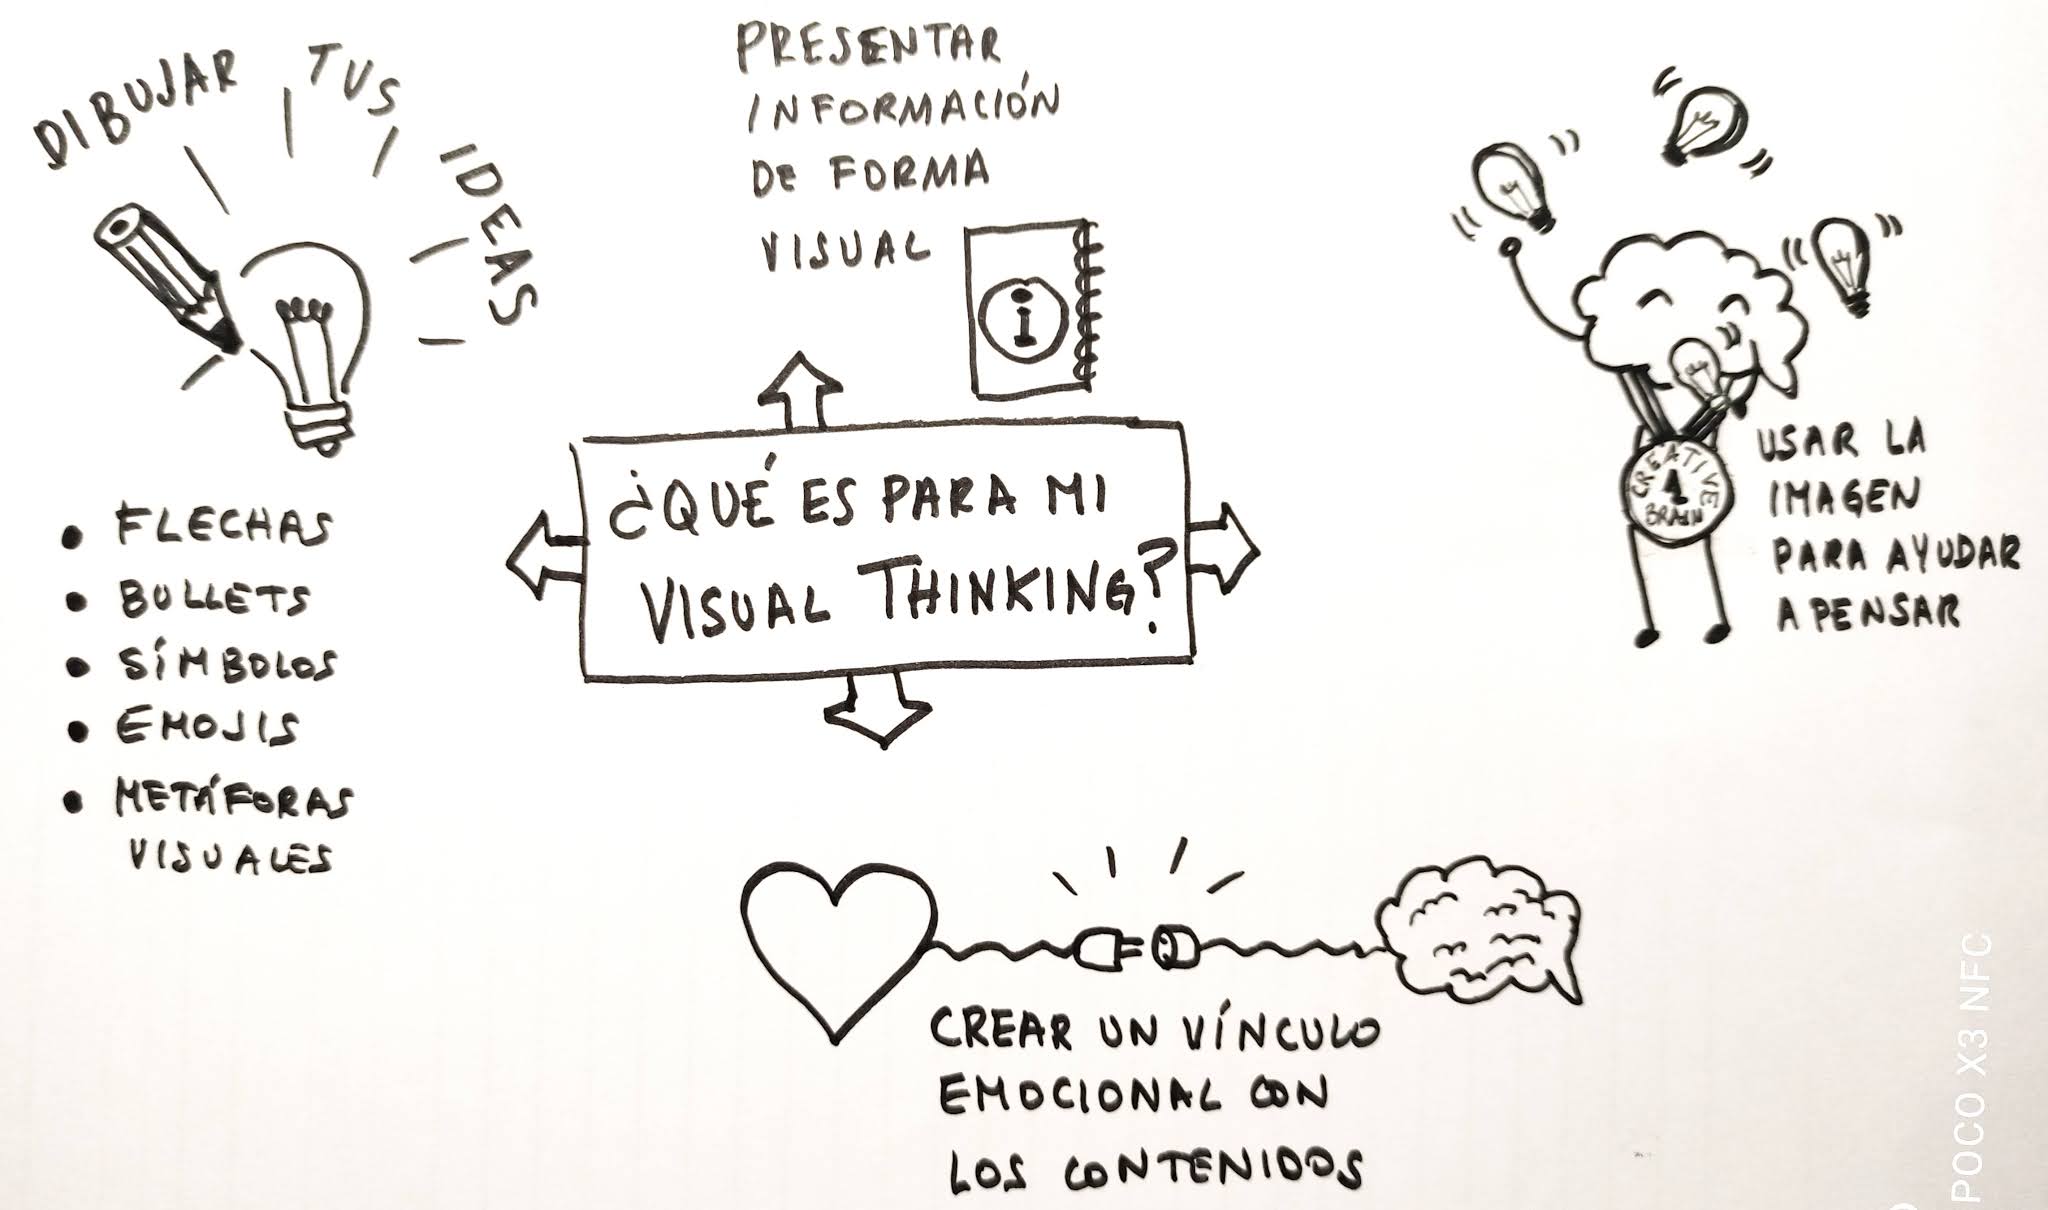 DIBUJAR TUS IDEAS
PRESENTAR
INFORMACIÓN
DE FORMA
VISUAL
i
¿QUÉ ES PARA MI
VISUAL THINKING?
FLECHAS
BULLETS
SÍMBOLOS
EMOJIS
METÁFORAS
VISUALES
CREATIVE
1
BRAIN
USAR LA
IMAGEN
PARA AYUDAR
A PENSAR
CREAR UN VÍNCULO
EMOCIONAL CON
LOS CONTENIDOS
POCO X3 NFC